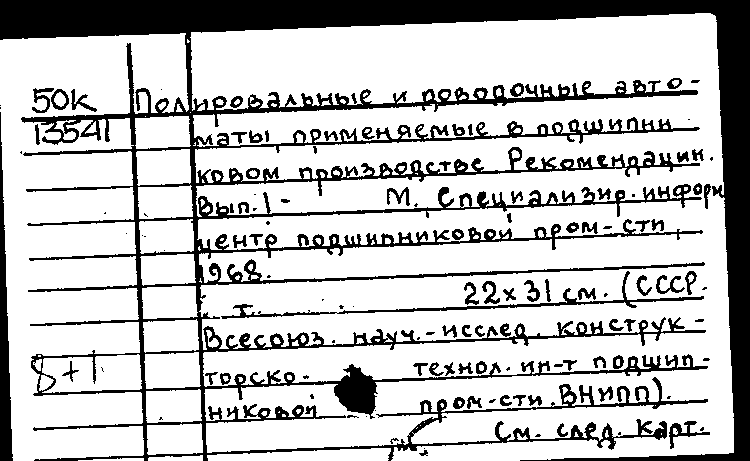 50к Полировальные и доводочные авто-
13541 маты, применяемые в подшипни
ковом производстве Рекомендации.
Вып. 1 - М, Специализир. информ
центр подшипниковой пром-сти,
1968.
т. 22х31 см. (СССР.
Всесоюз. науч.-исслед. конструк-
8+1 торско- технол. ин-т подшип-
никовой пром-сти. ВНИПП).
См. след. карт.